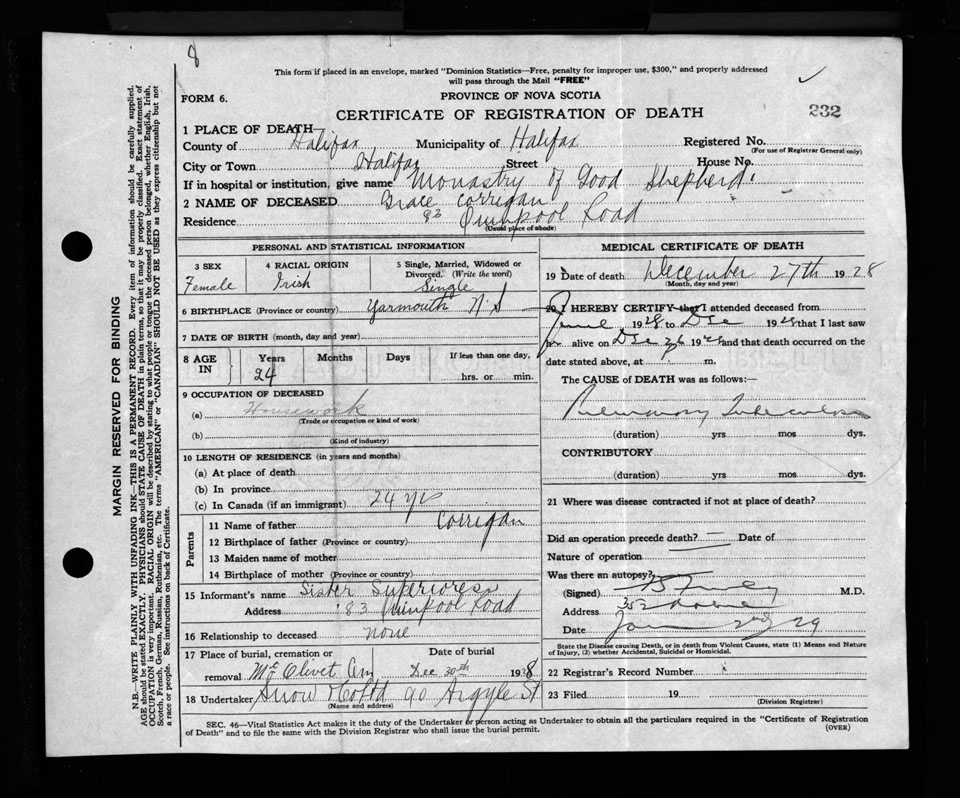 8
This form if placed in an envelope, marked "Dominion Statistics—Free, penalty for improper use, $300," and properly addressed
will pass through the Mail "FREE"
FORM 6.
PROVINCE OF NOVA SCOTIA
232
CERTIFICATE OF REGISTRATION OF DEATH
1 PLACE OF DEATH
County of Halifax Municipality of Halifax Registered No.
(For use of Registrar General only)
City or Town Halifax Street House No.
If in hospital or institution, give name Monastry of Good Shepherd
2 NAME OF DECEASED Grace Corrigan
Residence 83 Quinpool Road
(Usual place of abode)
PERSONAL AND STATISTICAL INFORMATION
3 SEX
Female
4 RACIAL ORIGIN
Irish
5 Single, Married, Widowed or
Divorced. (Write the word)
Single
6 BIRTHPLACE (Province or country) Yarmouth N.S
7 DATE OF BIRTH (month, day and year)
8 AGE IN Years Months Days If less than one day,
24 hrs. or min.
9 OCCUPATION OF DECEASED
(a) Housework
(Trade or occupation or kind of work)
(b)
(Kind of industry)
10 LENGTH OF RESIDENCE (in years and months)
(a) At place of death
(b) In province
(c) In Canada (if an immigrant) 24 yrs
Parents
11 Name of father Corrigan
12 Birthplace of father (Province or country)
13 Maiden name of mother
14 Birthplace of mother (Province or country)
15 Informant's name Sister Superioress
Address 83 Quinpool Road
16 Relationship to deceased none
17 Place of burial, cremation or Date of burial
removal Mt Olivet Cem Dec 30th 1928
18 Undertaker Snow & Co Ltd 90 Argyle St
(Name and address)
MEDICAL CERTIFICATE OF DEATH
19 Date of death December 27th 1928
(Month, day and year)
20 I HEREBY CERTIFY that I attended deceased from
June 1928 to Dec 1928 that I last saw
her alive on Dec 26 1928 and that death occurred on the
date stated above, at m.
The CAUSE of DEATH was as follows:—
Pulmonary Tuberculosis
(duration) yrs mos dys.
CONTRIBUTORY
(duration) yrs mos dys.
21 Where was disease contracted if not at place of death?
Did an operation precede death? — Date of
Nature of operation
Was there an autopsy?
(Signed) M.D.
Address
Date Jan 2nd 29
State the Disease causing Death, or in death from Violent Causes, state (1) Means and Nature
of Injury, (2) whether Accidental, Suicidal or Homicidal.
22 Registrar's Record Number
23 Filed 19
(Division Registrar)
SEC. 46—Vital Statistics Act makes it the duty of the Undertaker or person acting as Undertaker to obtain all the particulars required in the "Certificate of Registration
of Death" and to file the same with the Division Registrar who shall issue the burial permit.
(OVER)
MARGIN RESERVED FOR BINDING
N.B.—WRITE PLAINLY WITH UNFADING INK—THIS IS A PERMANENT RECORD. Every item of information should be carefully supplied.
AGE should be stated EXACTLY. PHYSICIANS should STATE CAUSE OF DEATH in plain terms, so that it may be properly classified. Exact statement of
OCCUPATION is very important. RACIAL ORIGIN will be described by stating to what people or tongue the deceased person belonged, whether English, Irish,
Scotch, French, German, Russian, Ruthenian, etc. The terms "AMERICAN" or "CANADIAN" SHOULD NOT BE USED as they express citizenship but not
a race or people. See instructions on back of Certificate.